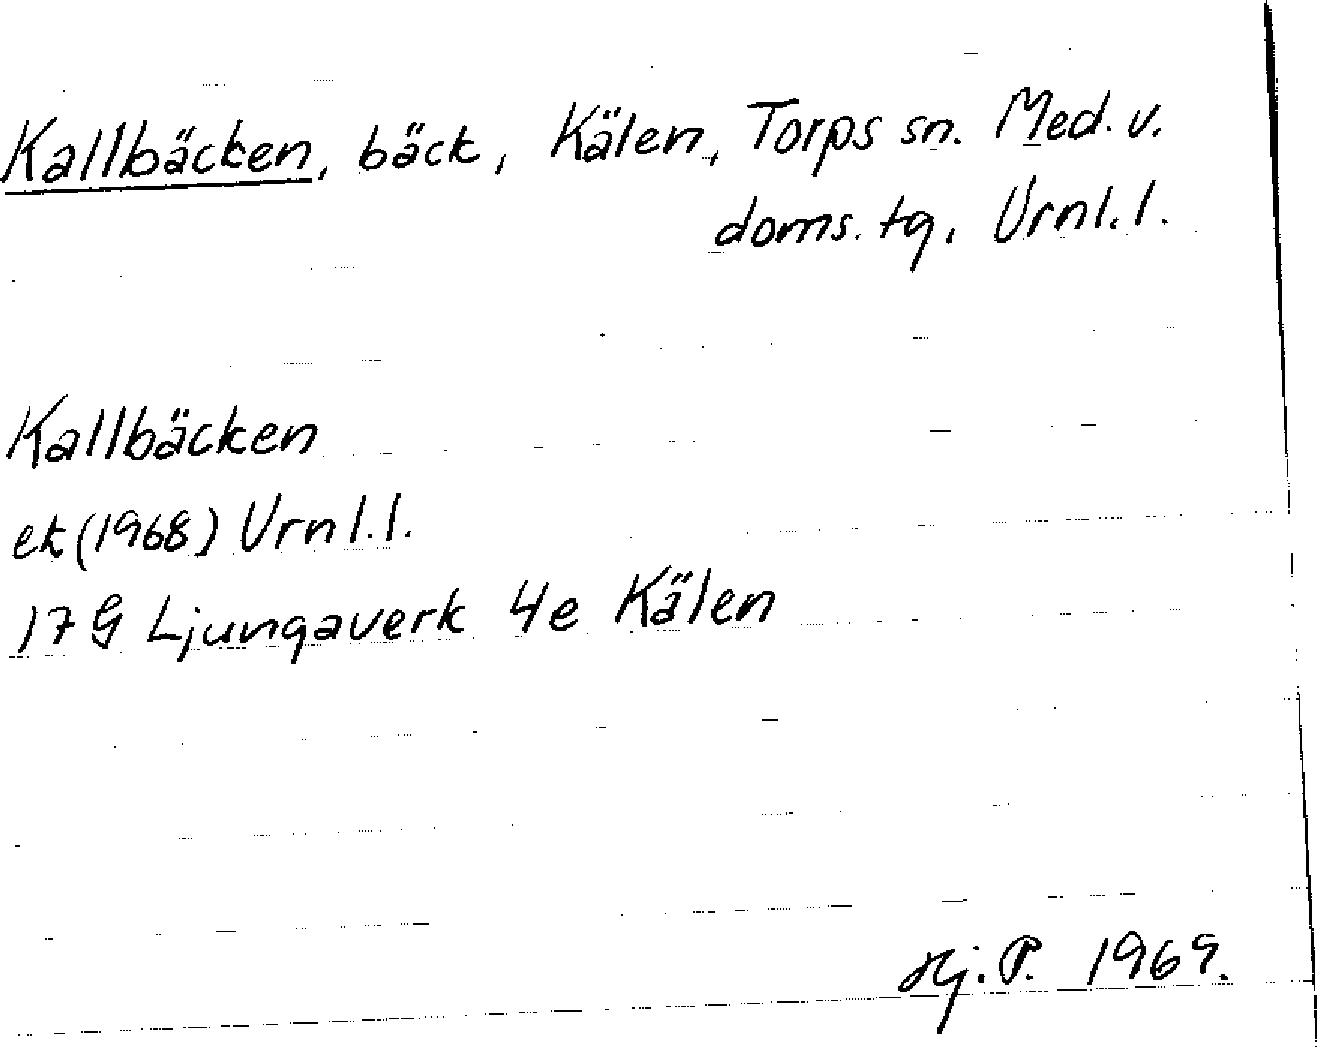 Kallbäcken, bäck, Kälen, Torps sn. Med. v.
doms. tg. Vrnl. l.
Kallbäcken
ek (1968) Vrnl. l.
17 G Ljungaverk 4e Kälen
Hj. P. 1969.